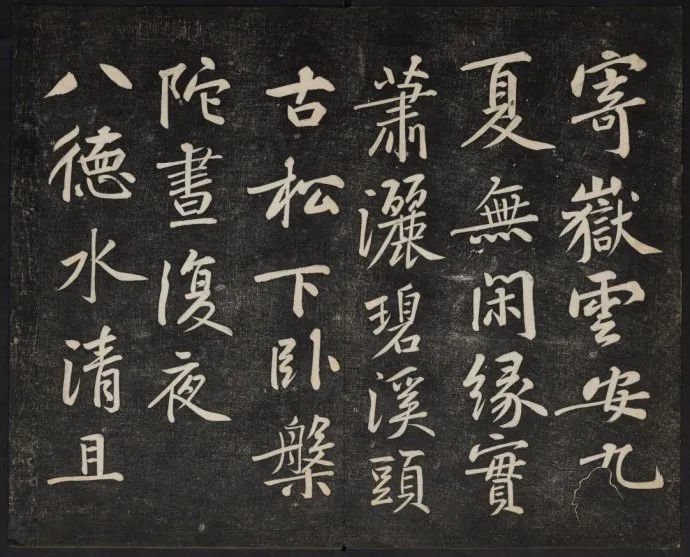 寄嶽雲安九
夏無閑緣實
蕭灑碧溪頭
古松下卧槃
陀晝復夜
八德水清且